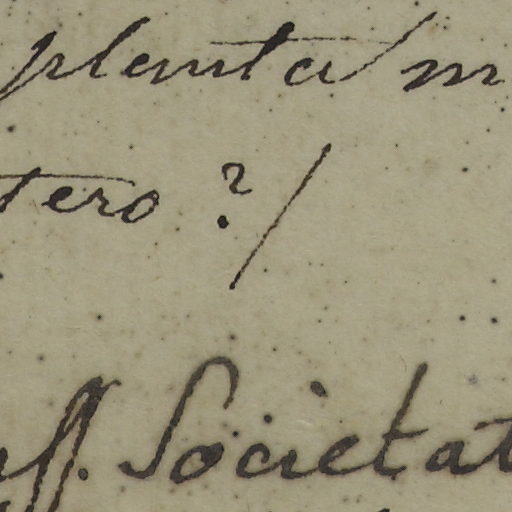 plenita m
tero ?/
ss. Societat